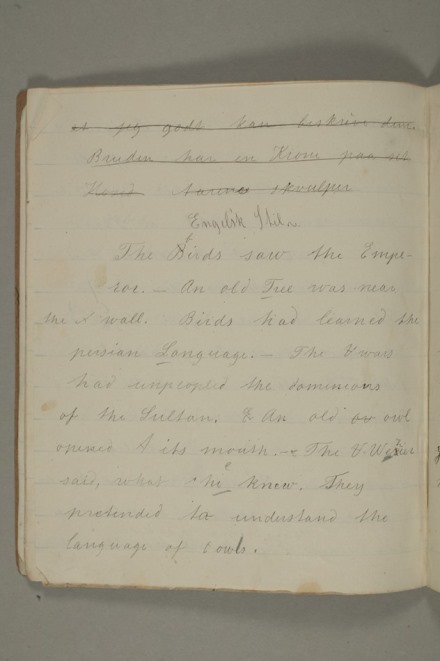 at jeg godt kan beskrive dem.
Bruden har en Krone paa sit
Hoved Taarne skvulper
Engelsk Stil.
The Birds saw the Empe-
ror. — An old Tree was near
the wall. Birds had learned the
persian Language. — The Wars
had unpeopled the dominions
of the Sultan. An old or owl
opened its mouth. — The Vizier
said, what he knew. They
pretended to understand the
language of owls.